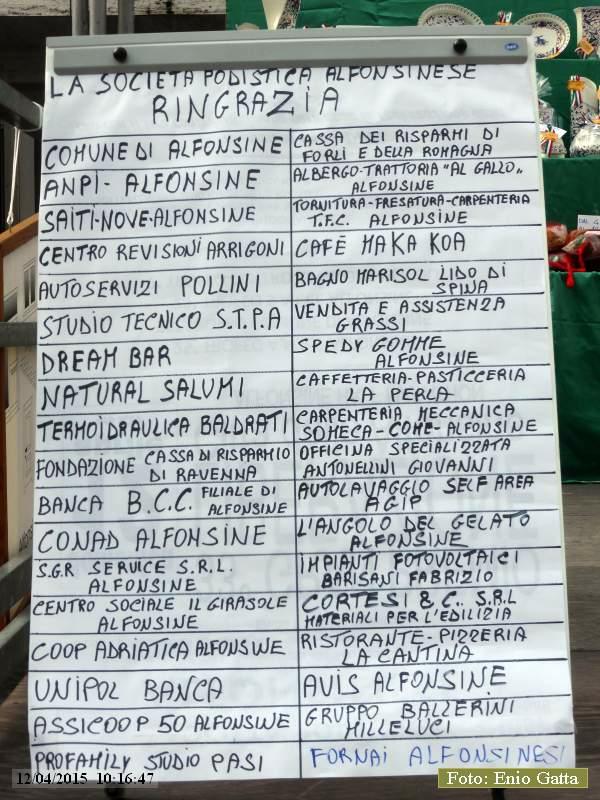 LA SOCIETÀ PODISTICA ALFONSINESE
RINGRAZIA
COMUNE DI ALFONSINE
ANPI - ALFONSINE
SAITI-NOVE-ALFONSINE
CENTRO REVISIONI ARRIGONI
AUTOSERVIZI POLLINI
STUDIO TECNICO S.T.P.A
DREAM BAR
NATURAL SALUMI
TERMOIDRAULICA BALDRATI
FONDAZIONE CASSA DI RISPARMIO
DI RAVENNA
BANCA B.C.C. FILIALE DI
ALFONSINE
CONAD ALFONSINE
S.G.R SERVICE S.R.L.
ALFONSINE
CENTRO SOCIALE IL GIRASOLE
ALFONSINE
COOP ADRIATICA ALFONSINE
UNIPOL BANCA
ASSICOOP 50 ALFONSINE
PROFAMILY STUDIO PASI
CASSA DEI RISPARMI DI
FORLÌ E DELLA ROMAGNA
ALBERGO-TRATTORIA "AL GALLO"
ALFONSINE
TORNITURA-FRESATURA-CARPENTERIA
T.F.C. ALFONSINE
CAFÈ MAKA KOA
BAGNO MARISOL LIDO DI
SPINA
VENDITA E ASSISTENZA
GRASSI
SPEDY GOMME
ALFONSINE
CAFFETTERIA-PASTICCERIA
LA PERLA
CARPENTERIA MECCANICA
SOMECA-COME-ALFONSINE
OFFICINA SPECIALIZZATA
ANTONELLINI GIOVANNI
AUTOLAVAGGIO SELF AREA
AGIP
L'ANGOLO DEL GELATO
ALFONSINE
IMPIANTI FOTOVOLTAICI
BARISANI FABRIZIO
CORTESI & C.. S.R.L
MATERIALI PER L'EDILIZIA
RISTORANTE-PIZZERIA
LA CANTINA
AVIS ALFONSINE
GRUPPO BALLERINI
MILLELUCI
FORNAI ALFONSINESI
12/04/2015 10:16:47
Foto: Enio Gatta